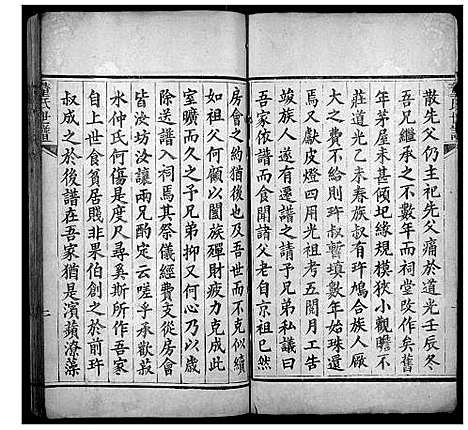 散先父仍主祀先父痛於道光壬辰冬
吾兄繼承之不數年而祠堂改作矣舊
年茅屋未甚傾圮緣規模狹小觀瞻不
莊道光乙未春族叔有玶鳩合族人厥
大之費不給則玶叔暫填數年始珠還
焉又獻皮燈四用光祖考五閱月工告
竣族人遂有遷譜之請予兄弟私議曰
吾家依譜而食聞諸父老自京祖已列
房會之約猶有後吾世而不克似續
如祖父何顧以闔族殫財疲力克成此
室曠而久之予兄弟抑又何心乃以歲
除送譜入祠焉其祭儀經費支從房會
皆汝坊汝讓兩兄酌定云嗟乎承歡菽
水仲氏何傷是度尺尋奚斯所作吾家
自上世食貧居賤非果伯創之於前玶
叔成之於後譜在吾家猶是濱蘋潦藻
童氏世譜
二